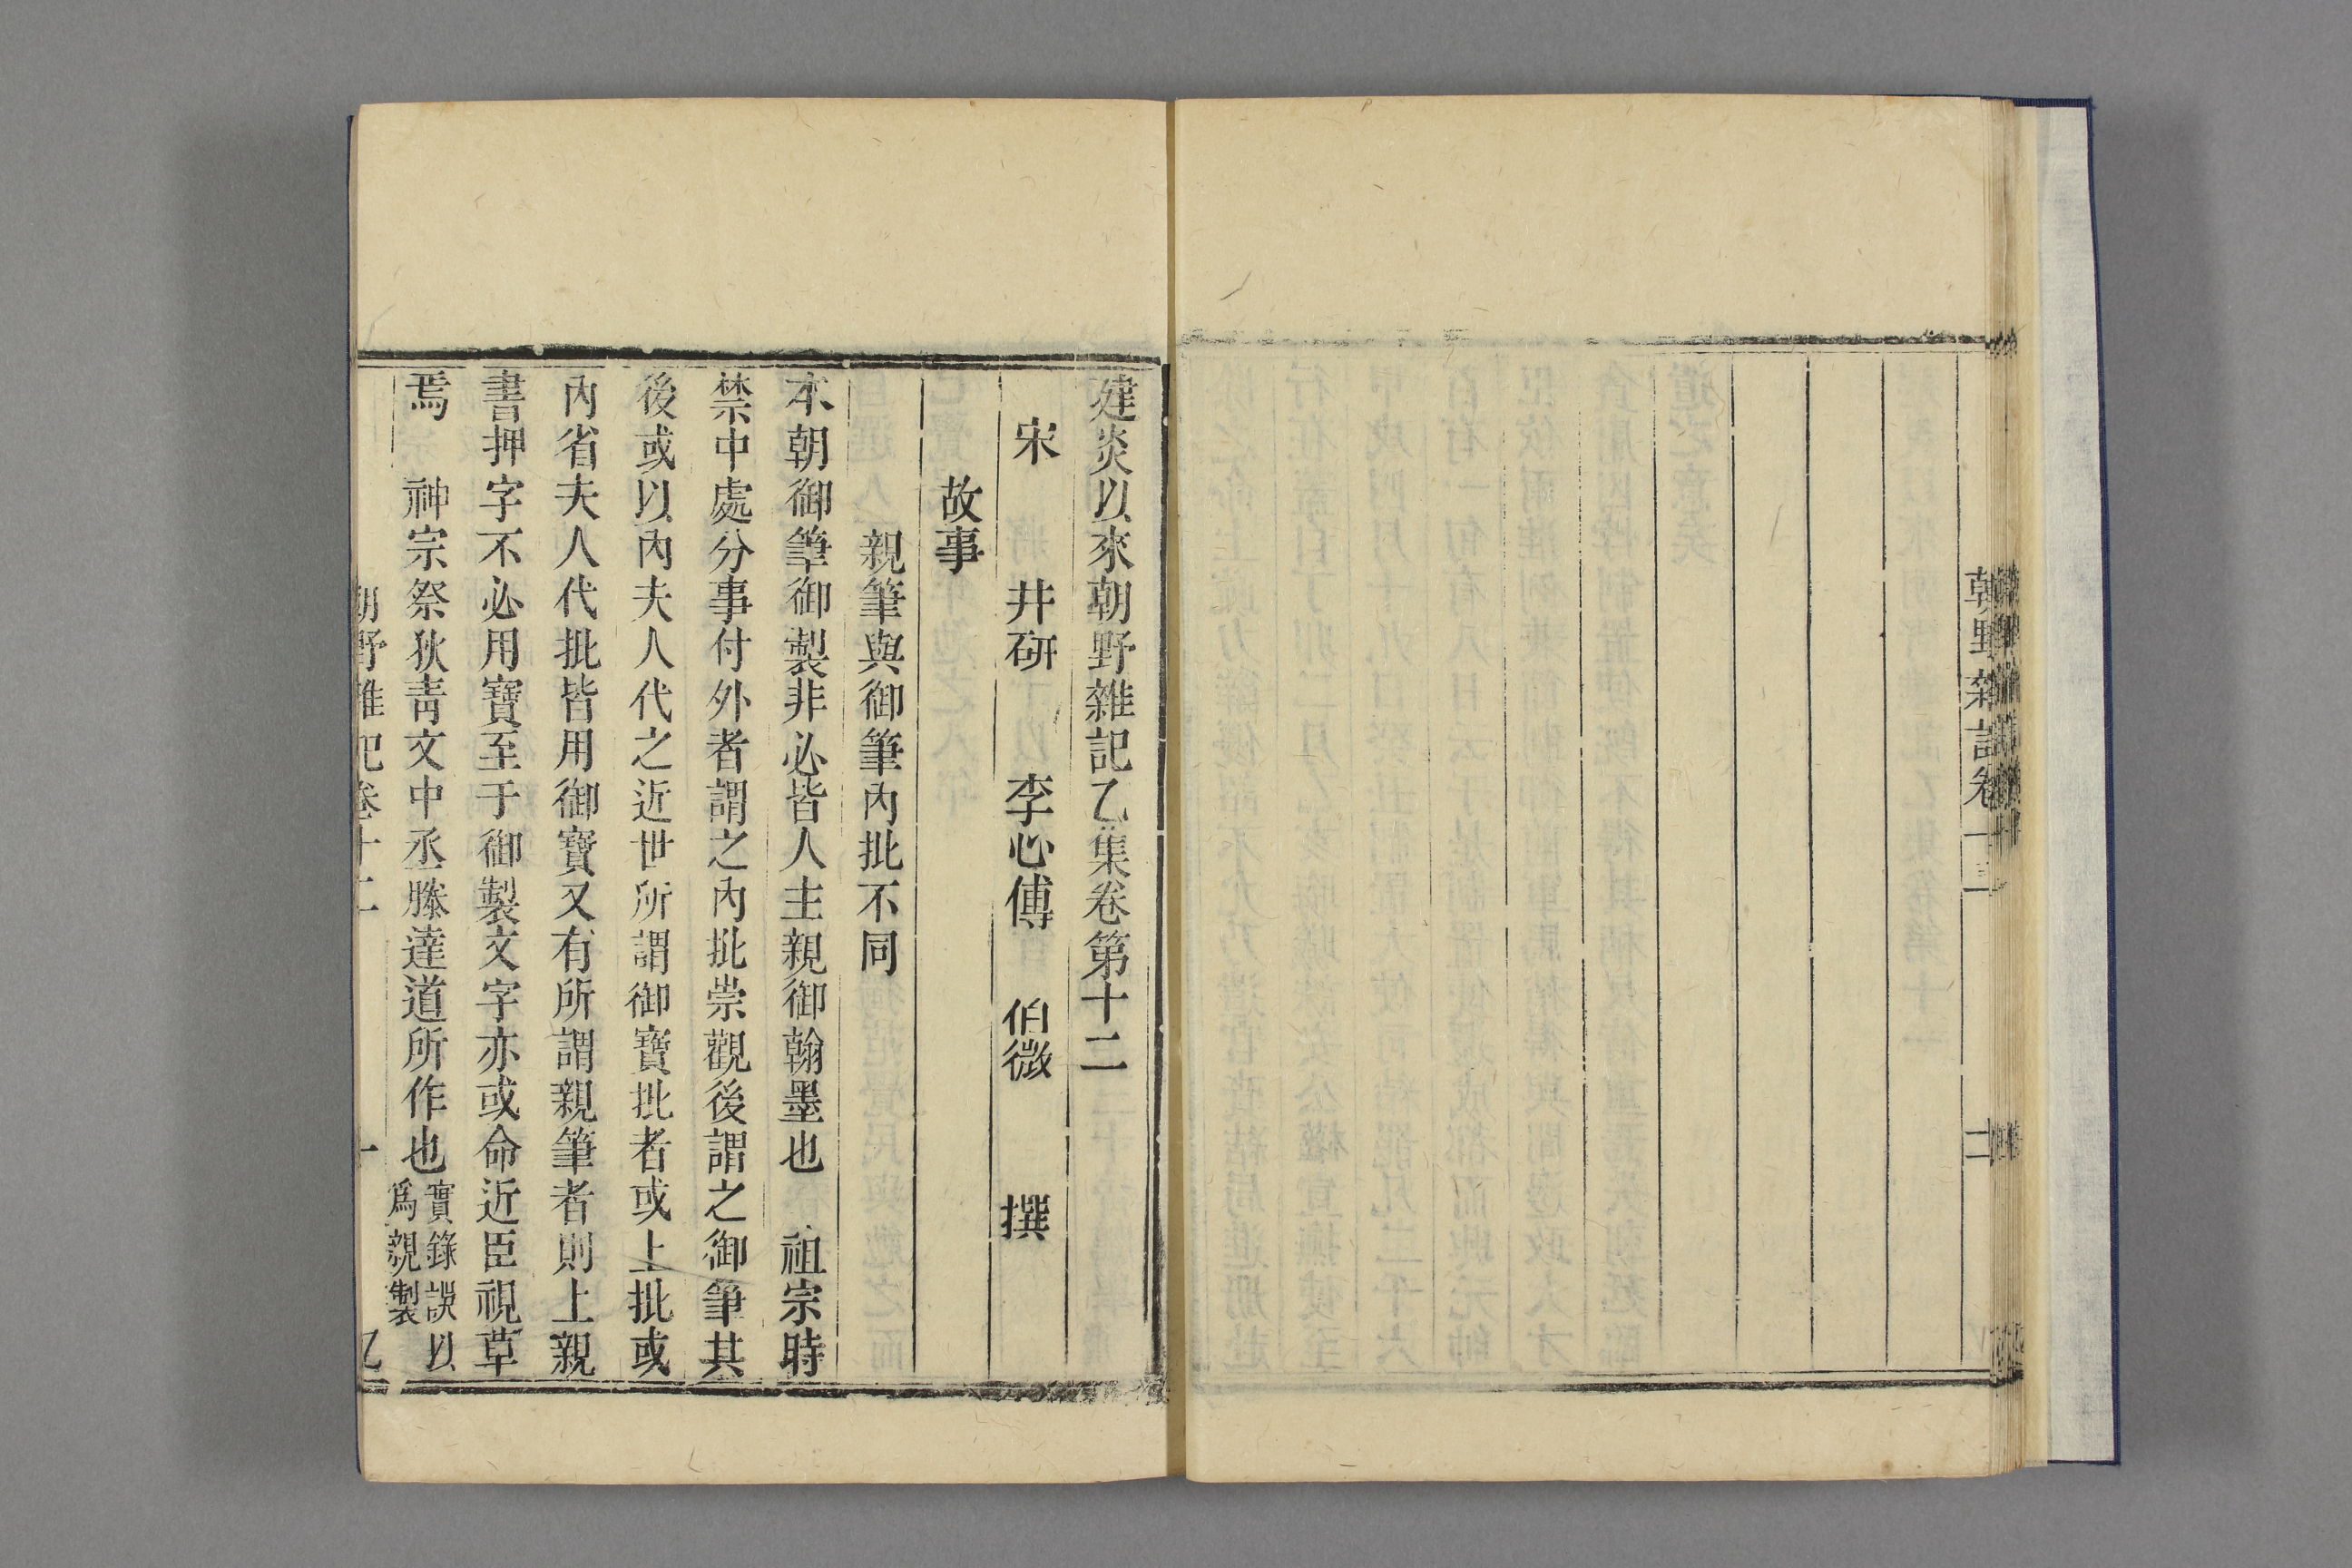 建炎以來朝野雜記乙集卷第十二
宋 井研 李心傳 伯微 撰
故事
親筆與御筆內批不同
本朝御筆御製非必皆人主親御翰墨也 祖宗時
禁中處分事付外者謂之內批崇觀後謂之御筆其
後或以內夫人代之近世所謂御寶批者或上批或
內省夫人代批皆用御寶又有所謂親筆者則上親
書押字不必用寶至于御製文字亦或命近臣視草
焉 神宗祭狄靑文中丞滕達道所作也實錄誤以
爲親製
朝野雜記卷十二 一